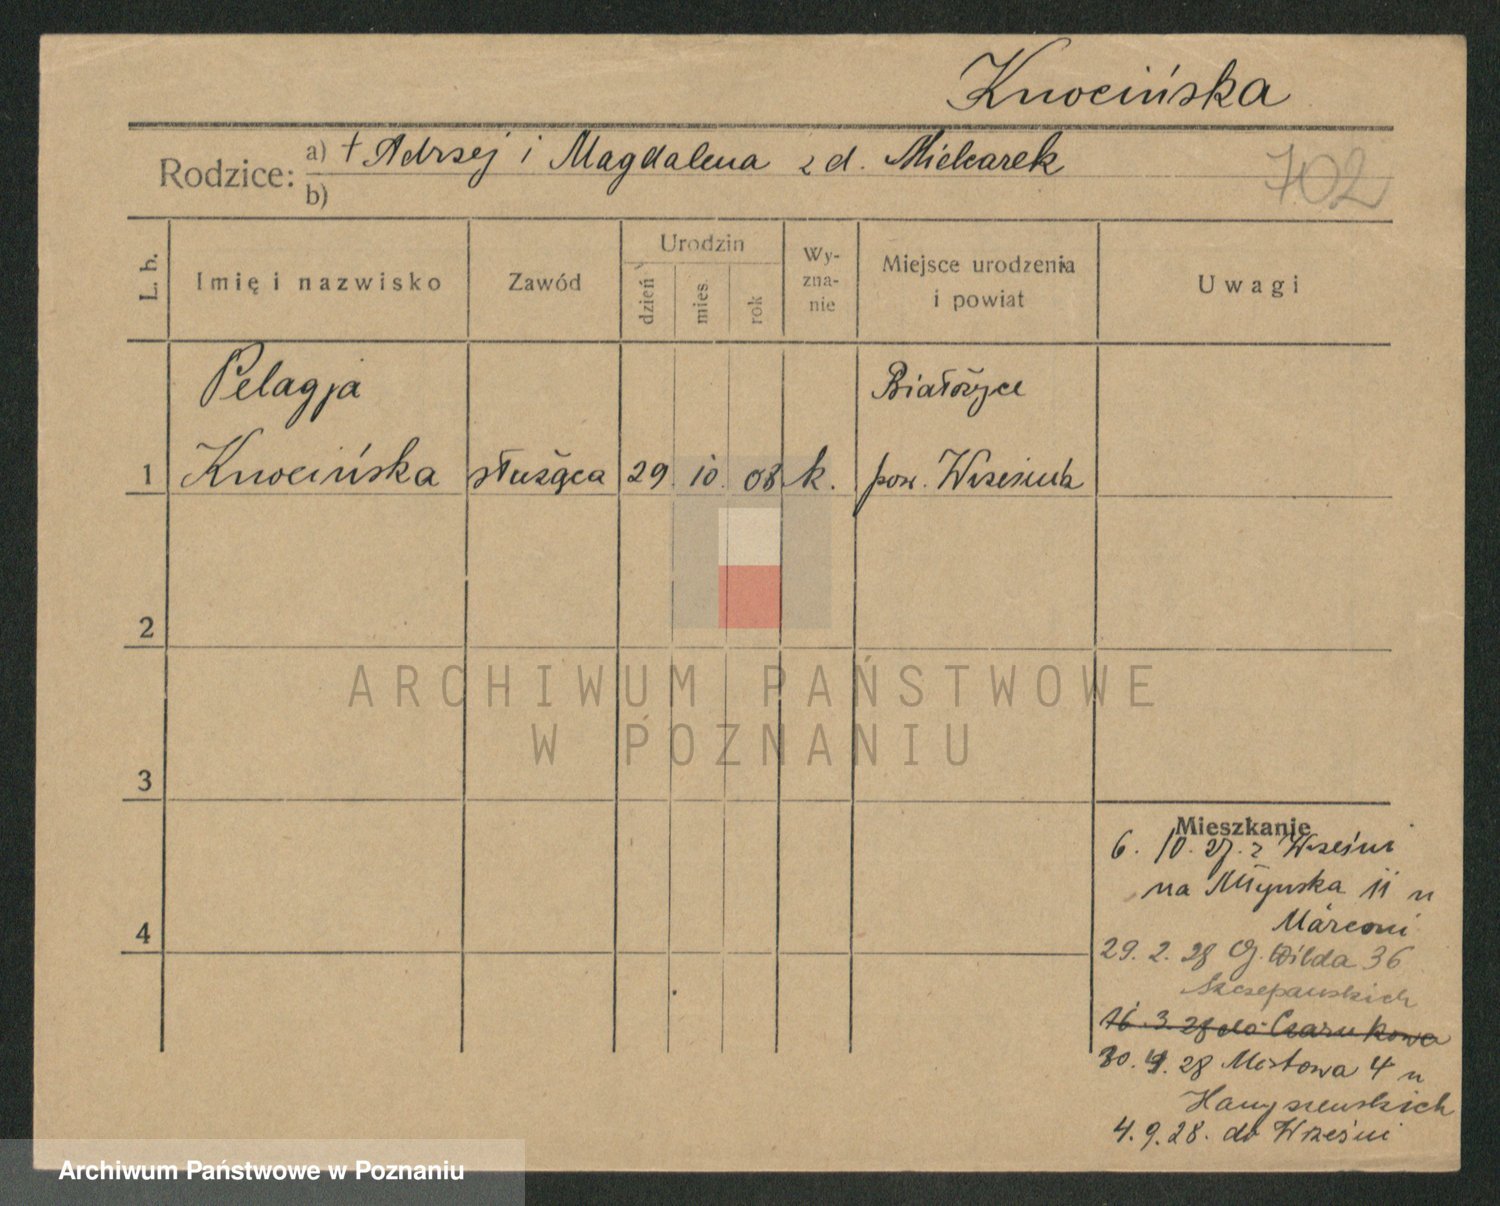 Knocińska
Rodzice: a) † Adrzej i Magdalena z d. Mielcarek
b)
702
L. b.
Imię i nazwisko
Zawód
Urodzin
dzień
mies.
rok
Wy-
zna-
nie
Miejsce urodzenia
i powiat
Uwagi
Pelagja
Białożyce
1 Knocińska służąca 29 10. 08 k. pow. Września
2
3
4
ARCHIWUM PAŃSTWOWE
W POZNANIU
Mieszkanie
6. 10. 27. z Wrześni
na Młyńska 11 u
Marconi
29. 2. 28 G. Wilda 36
Szczepańskich
16. 3. 28 do Czarnkowa
30. 4. 28 Mostowa 4 u
4. 9. 28. do Wrześni
Archiwum Państwowe w Poznaniu